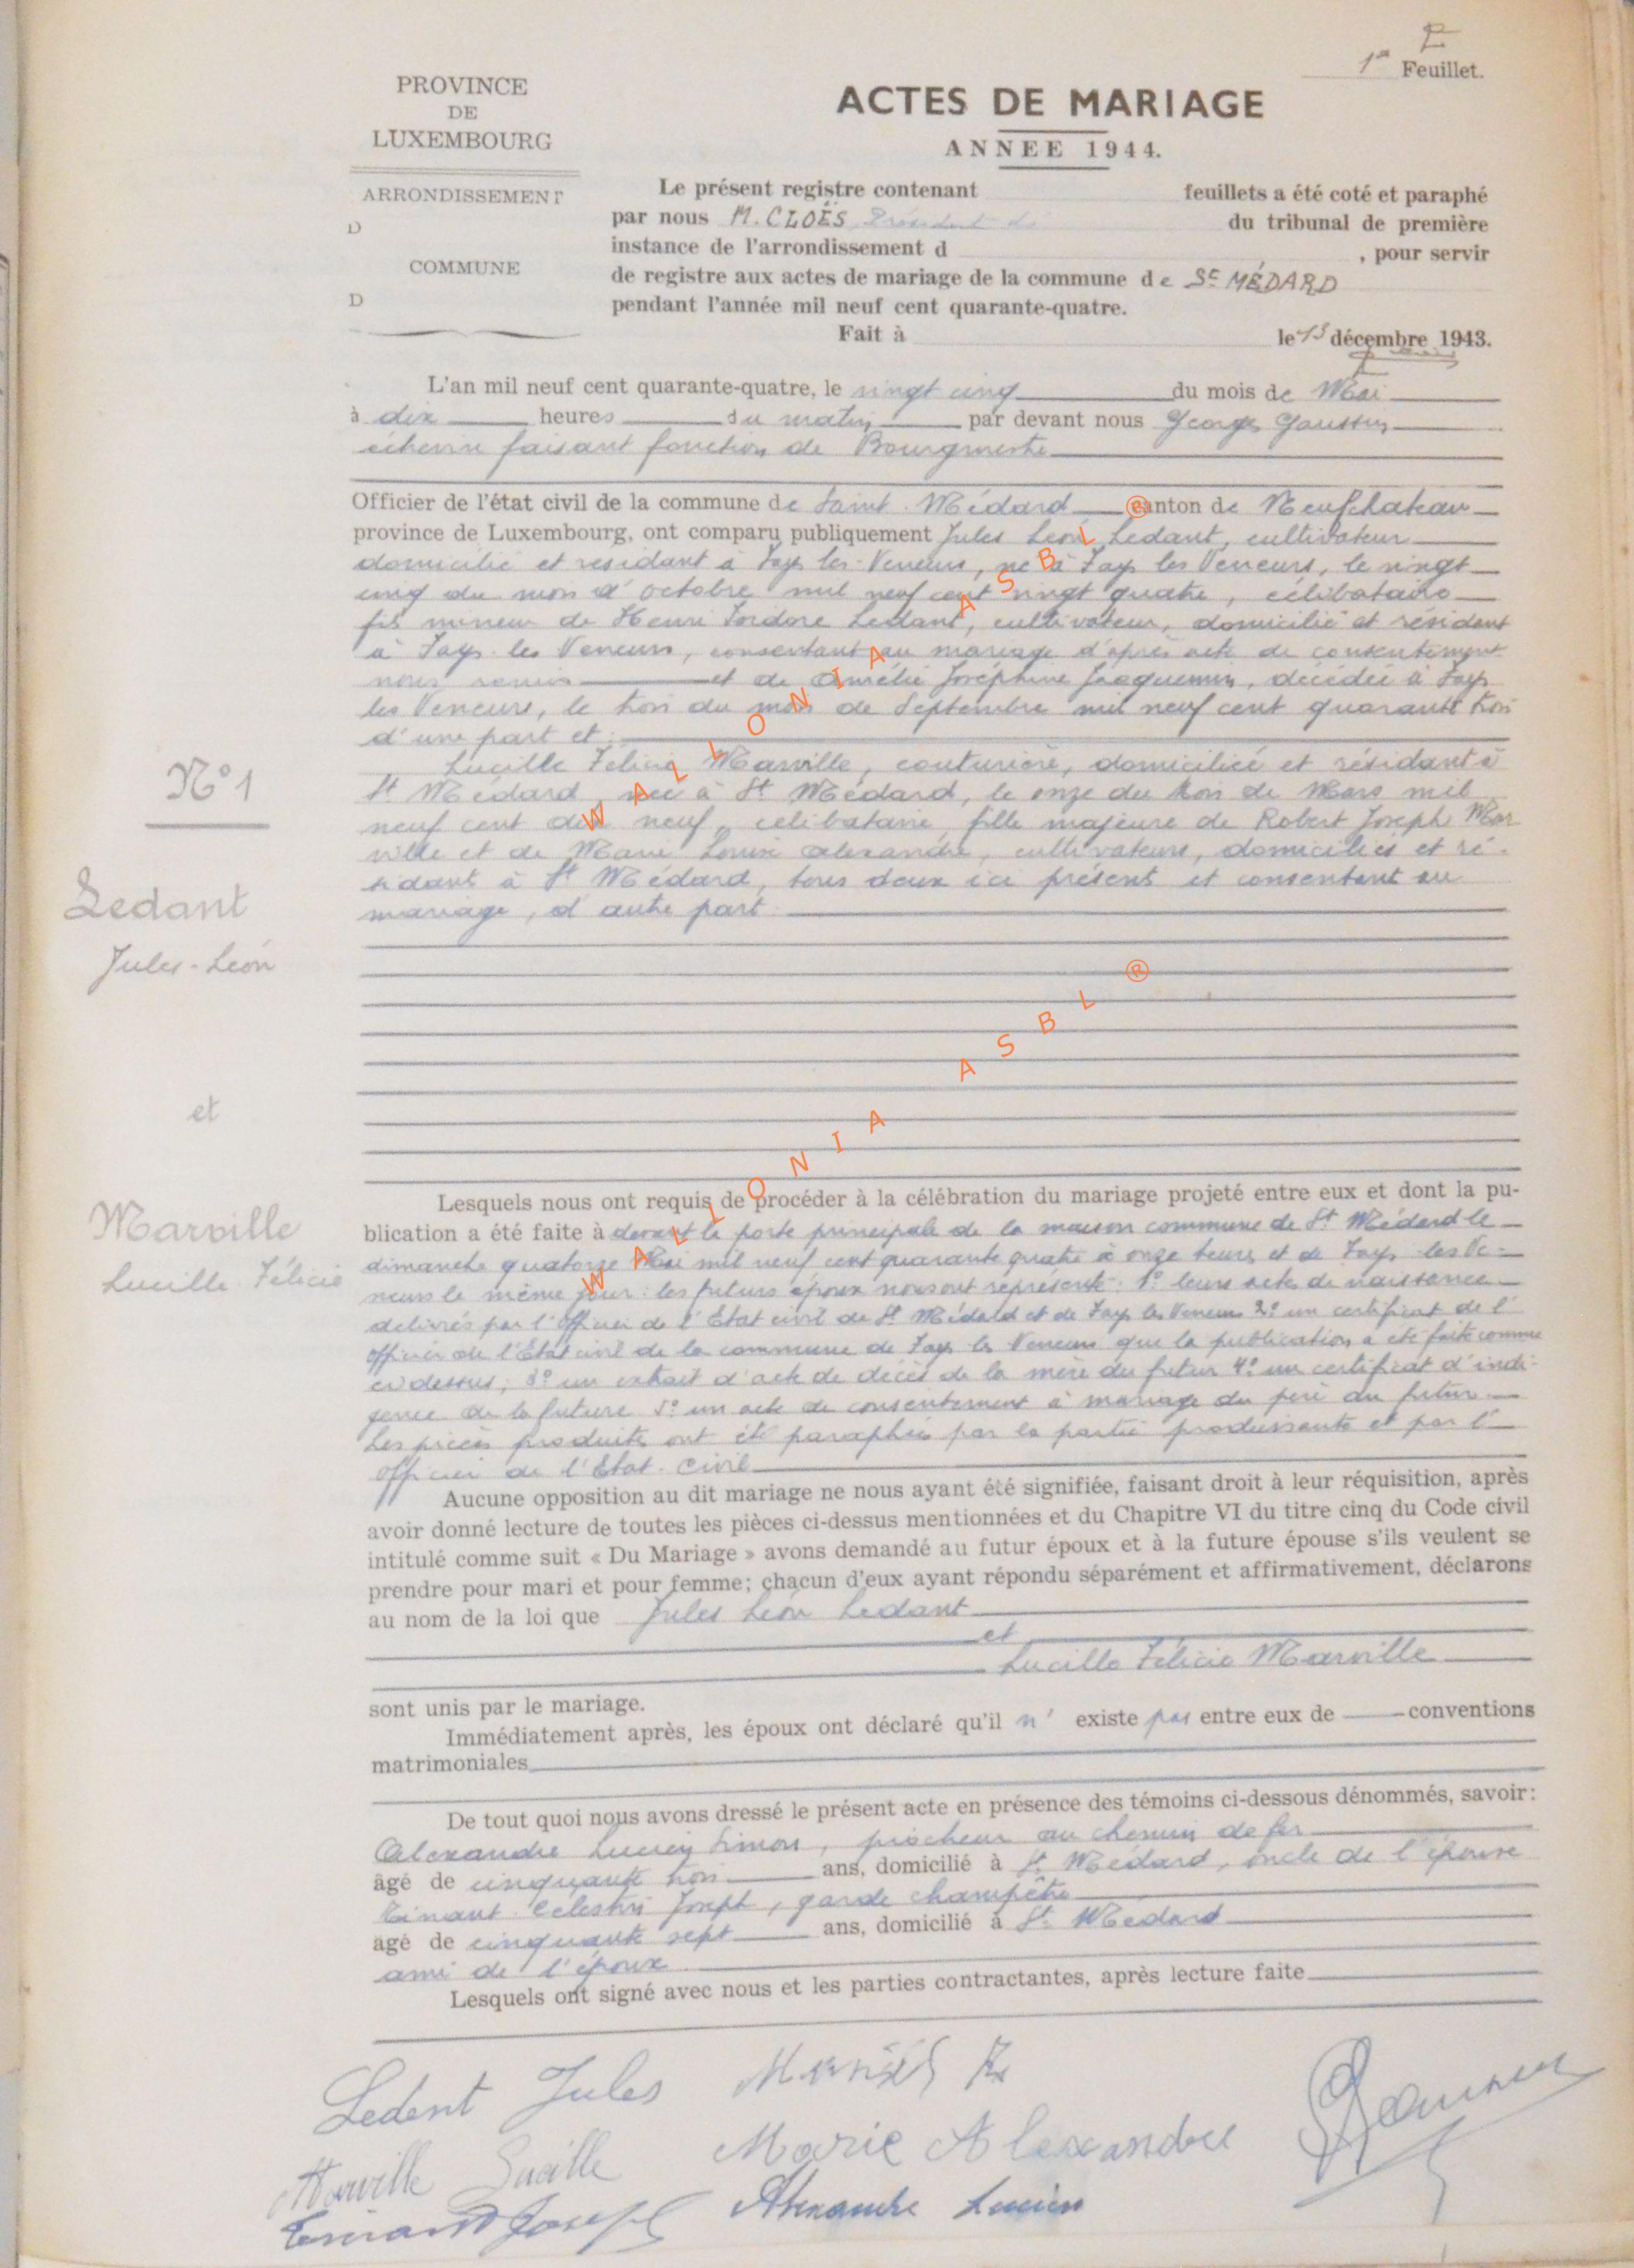 1er Feuillet.
PROVINCE
DE
LUXEMBOURG
ARRONDISSEMENT
D
COMMUNE
D
ACTES DE MARIAGE
ANNEE 1944.
Le présent registre contenant feuillets a été coté et paraphé
par nous M. CLOËS Président du tribunal de première
instance de l'arrondissement d , pour servir
de registre aux actes de mariage de la commune de St MÉDARD
pendant l'année mil neuf cent quarante-quatre.
Fait à le 13 décembre 1943.
L'an mil neuf cent quarante-quatre, le vingt cinq du mois de Mai
à dix heures du matin par devant nous Georges Gaussin
échevin faisant fonction de Bourgmestre
Officier de l'état civil de la commune de Saint Médard canton de Neufchateau
province de Luxembourg, ont comparu publiquement Jules Léon Ledant, cultivateur
domicilié et résidant à Fays les Veneurs, né à Fays les Veneurs, le vingt
cinq du mois d'octobre mil neuf cent vingt quatre, célibataire
fils mineur de Henri Isidore Ledant, cultivateur, domicilié et résidant
à Fays les Veneurs, consentant au mariage d'après acte de consentement
nous remis et de Amélie Joséphine Jacquemin, décédée à Fays
les Veneurs, le trois du mois de Septembre mil neuf cent quarante trois
d'une part et :
Lucille Félicie Marville, couturière, domiciliée et résidant à
St Médard, née à St Médard, le onze du mois de Mars mil
neuf cent dix neuf, célibataire, fille majeure de Robert Joseph Mar
ville et de Marie Louise Alexandre, cultivateurs, domiciliés et ré-
sidant à St Médard, tous deux ici présents et consentant au
mariage, d'autre part.
N°1
Ledant
Jules-Léon
et
Marville
Lucille Félicie
Lesquels nous ont requis de procéder à la célébration du mariage projeté entre eux et dont la pu-
blication a été faite à devant la porte principale de la maison commune de St Médard le
dimanche quatorze Mai mil neuf cent quarante quatre à onze heures et de Fays les Ve-
neurs le même jour : les futurs époux nous ont représenté : 1° leurs actes de naissance
délivrés par l'Officier de l'Etat civil de St Médard et de Fays les Veneurs 2° un certificat de l'
officier de l'Etat civil de la commune de Fays les Veneurs que la publication a été faite comme
ci dessus, 3° un extrait d'acte de décès de la mère du futur 4° un certificat d'indi-
gence de la future 5° un acte de consentement à mariage du père du futur
Les pièces produites ont été paraphées par la partie produisante et par l'
officier de l'Etat Civil
Aucune opposition au dit mariage ne nous ayant été signifiée, faisant droit à leur réquisition, après
avoir donné lecture de toutes les pièces ci-dessus mentionnées et du Chapitre VI du titre cinq du Code civil
intitulé comme suit « Du Mariage » avons demandé au futur époux et à la future épouse s'ils veulent se
prendre pour mari et pour femme; chacun d'eux ayant répondu séparément et affirmativement, déclarons
au nom de la loi que Jules Léon Ledant
et
Lucille Félicie Marville
sont unis par le mariage.
Immédiatement après, les époux ont déclaré qu'il n' existe pas entre eux de conventions
matrimoniales
De tout quoi nous avons dressé le présent acte en présence des témoins ci-dessous dénommés, savoir:
Alexandre Lucien Simon, piocheur au chemin de fer
âgé de cinquante trois ans, domicilié à St Médard, oncle de l'épouse
Tinant Célestin Joseph, garde champêtre
âgé de cinquante sept ans, domicilié à St Médard
ami de l'époux
Lesquels ont signé avec nous et les parties contractantes, après lecture faite
Ledent Jules
Marville Lucille
Marie Alexandre
Tinant Joseph Alexandre Lucien
WALLONIA ASBL ®
WALLONIA ASBL ®